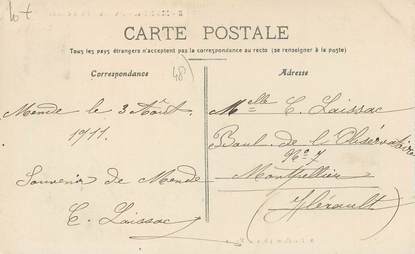 lot
CARTE POSTALE
Tous les pays étrangers n'acceptent pas la correspondance au recto (se renseigner à la poste)
Correspondance
48
Adresse
Mende le 3 Août
1911.
Souvenir de Mende
E. Laissac
Melle E. Laissac
Boul. de l'Observatoire
No 7
Montpellier
(Hérault)